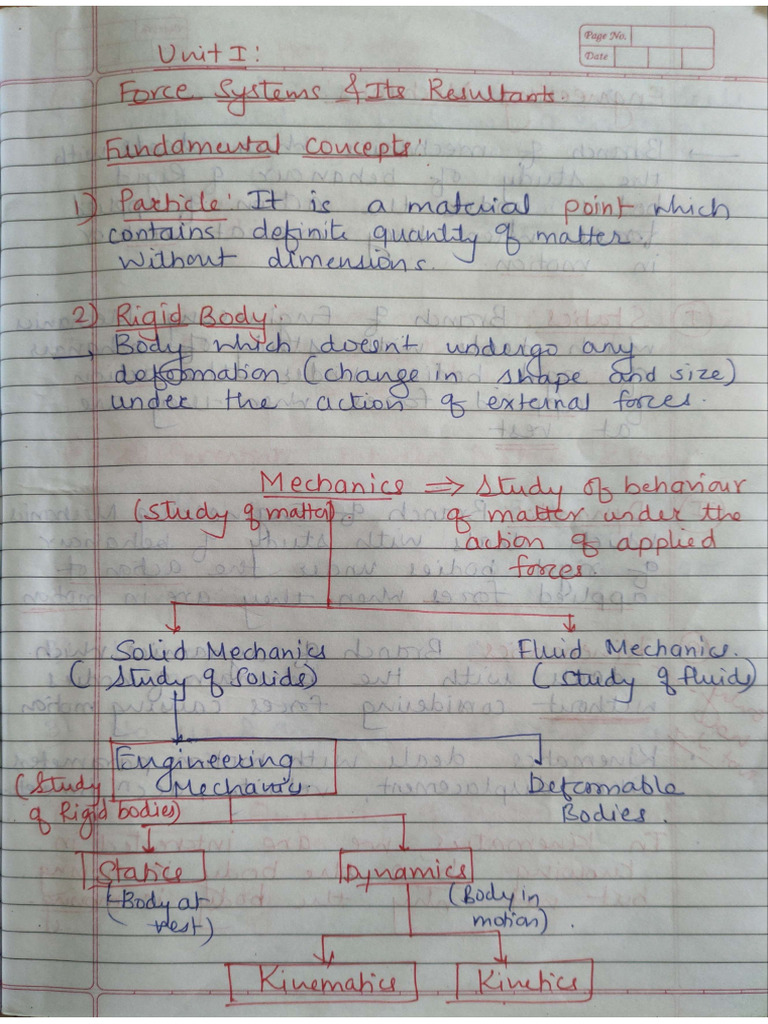 Page No.
Date
Unit I:
Force Systems & Its Resultants.
Fundamental concepts:
1) Particle: It is a material point which
contains definite quantity of matter.
without dimensions.
2) Rigid Body:
→ Body which doesn't undergo any
deformation (change in shape and size)
under the action of external forces.
Mechanics ⇒ Study of behaviour
(study of matter) of matter under the
action of applied
forces.
Solid Mechanics Fluid Mechanics.
( Study of solids) (study of fluids)
Engineering
Mechanics Deformable
(Study Bodies.
of Rigid bodies)
Statics Dynamics
(Body at (Body in
rest) motion).
Kinematics Kinetics